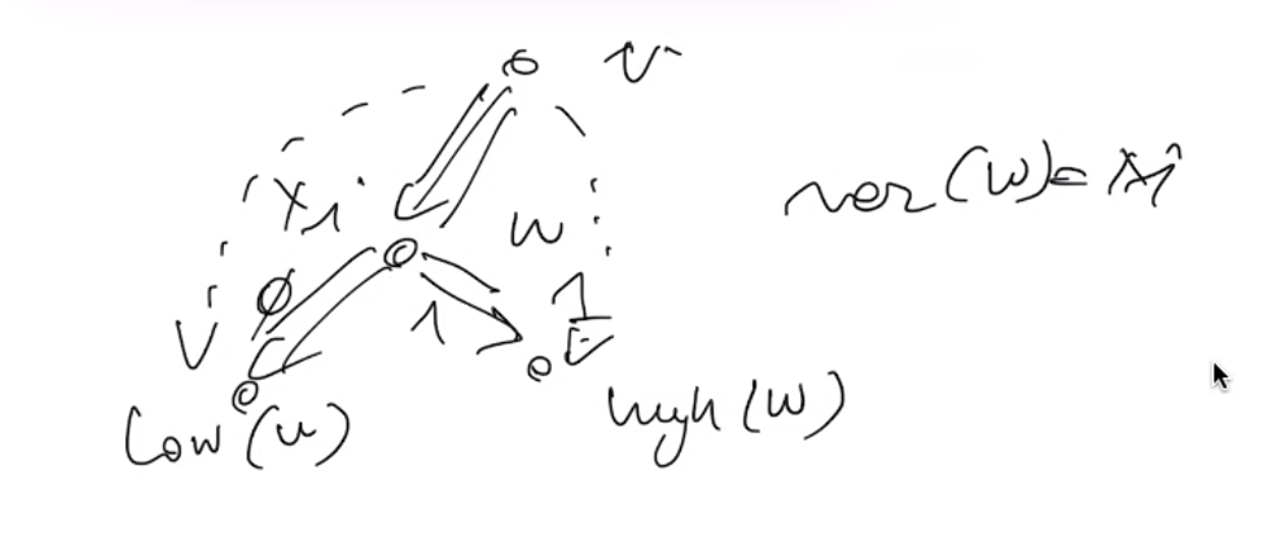 v
x1
w
var(w)=
0
1
1
low(u)
high(w)